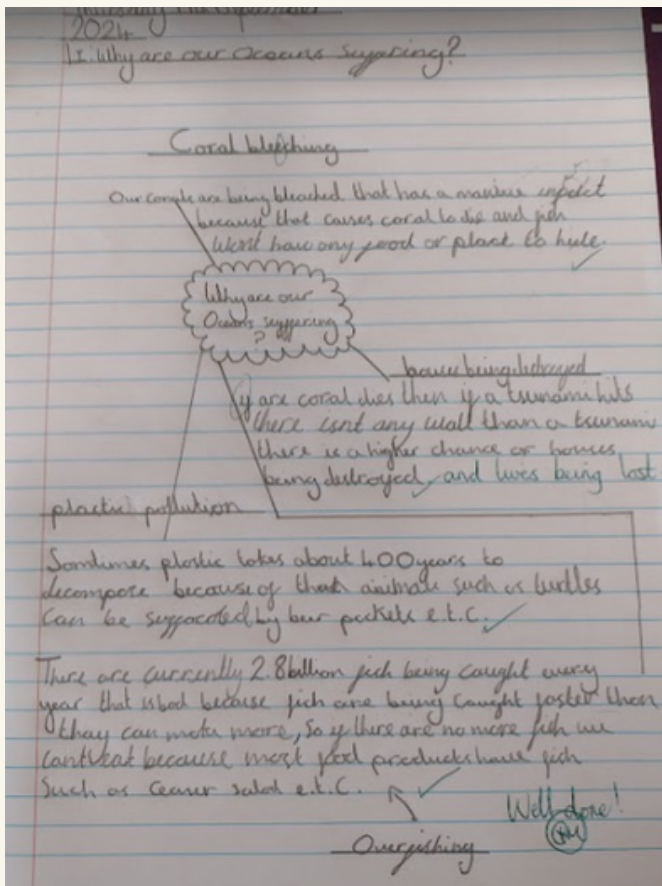 Thursday September
2024
LI: Why are our Oceans suffering?
Coral bleaching
Our corals are being bleached that has a massive impact
because that causes coral to die and fish
wont have any food or place to hide.
Why are our
Oceans suffering
?
houses being destroyed
if are coral dies then if a tsunami hits
there isnt any wall than a tsunami
there is a higher chance or houses
being destroyed, and lives being lost
plastic pollution
Somtimes plastic takes about 400 years to
decompose because of that animals such as turtles
can be suffocated by pockets e.t.c.
There are currently 2.8 billion fish being caught every
year that is bad because fish are being caught faster than
thay can more, so if there are no more fish we
cant eat because most food products have fish
Such as Ceaser salad e.t.c.
Well done!
Overfishing